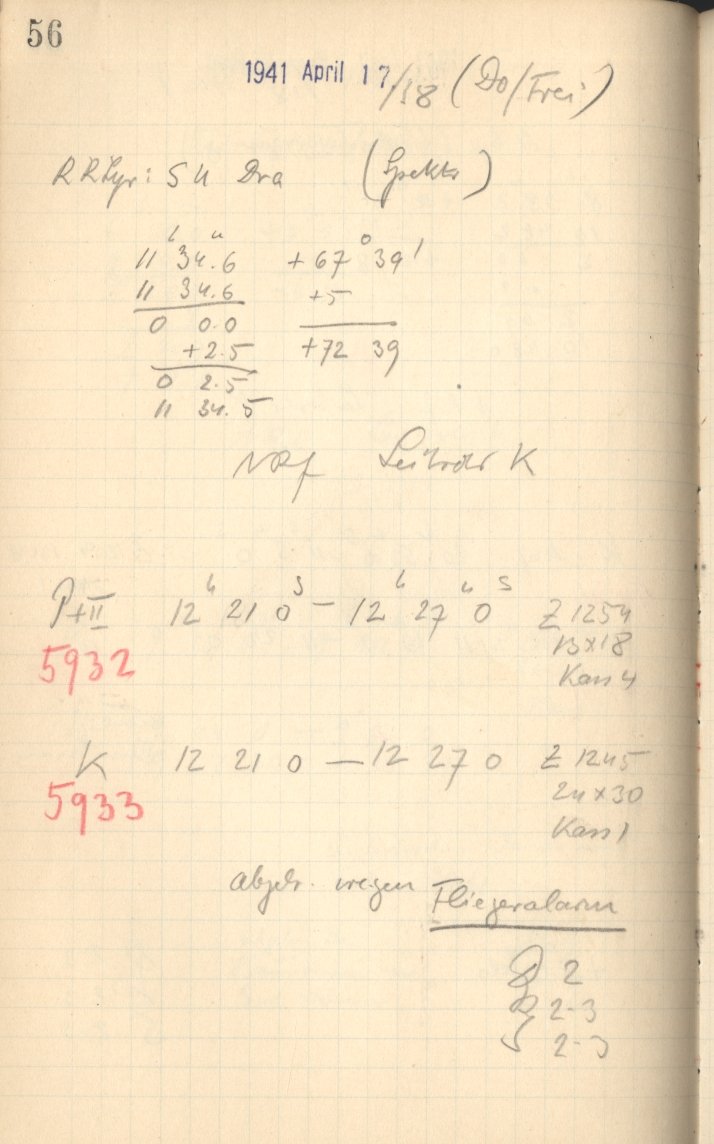 56
1941 April 17/18 (Do/Frei)
RR Lyr: SU Dra (Spektr)
11h 34.6 +67° 39'
11 34.6 +5
0 0.0
+2.5 +72 39
0 2.5
11 34.5
Leitrohr K
P+II 12h 21 0s – 12h 27 0s Z 1254
5932 13×18
Kass 4
K 12 21 0 — 12 27 0 Z 1245
5933 24×30
Kass 1
abgebr. wegen Fliegeralarm
2
2-3
2-3